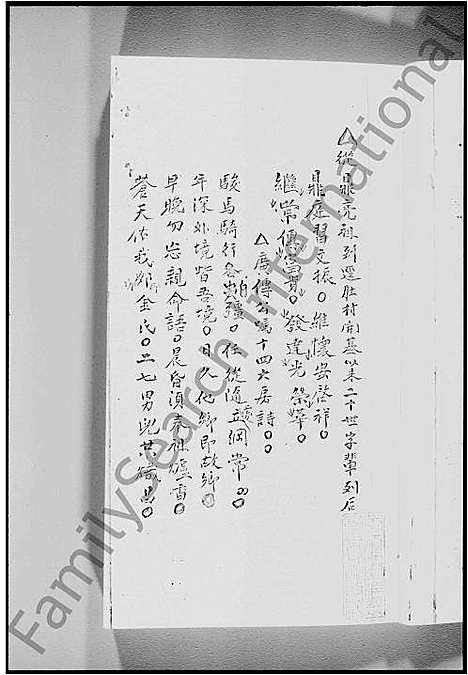 △從鼎亮祖到選肚村開基以來二十世字輩列后
鼎庭習文振。維懷安啓祥。
繼常傳富貴。發達光榮華。
△廣傳公寫十四大房詩。。
駿馬騎行各出疆。任從隨處立綱常。。
年深外境皆吾境。日久他鄉即故鄉。
早晚勿忘親命語。晨昏須奉祖爐香。
蒼天佑我鄧金氏。二七男兒共熾昌。
FamilySearch International